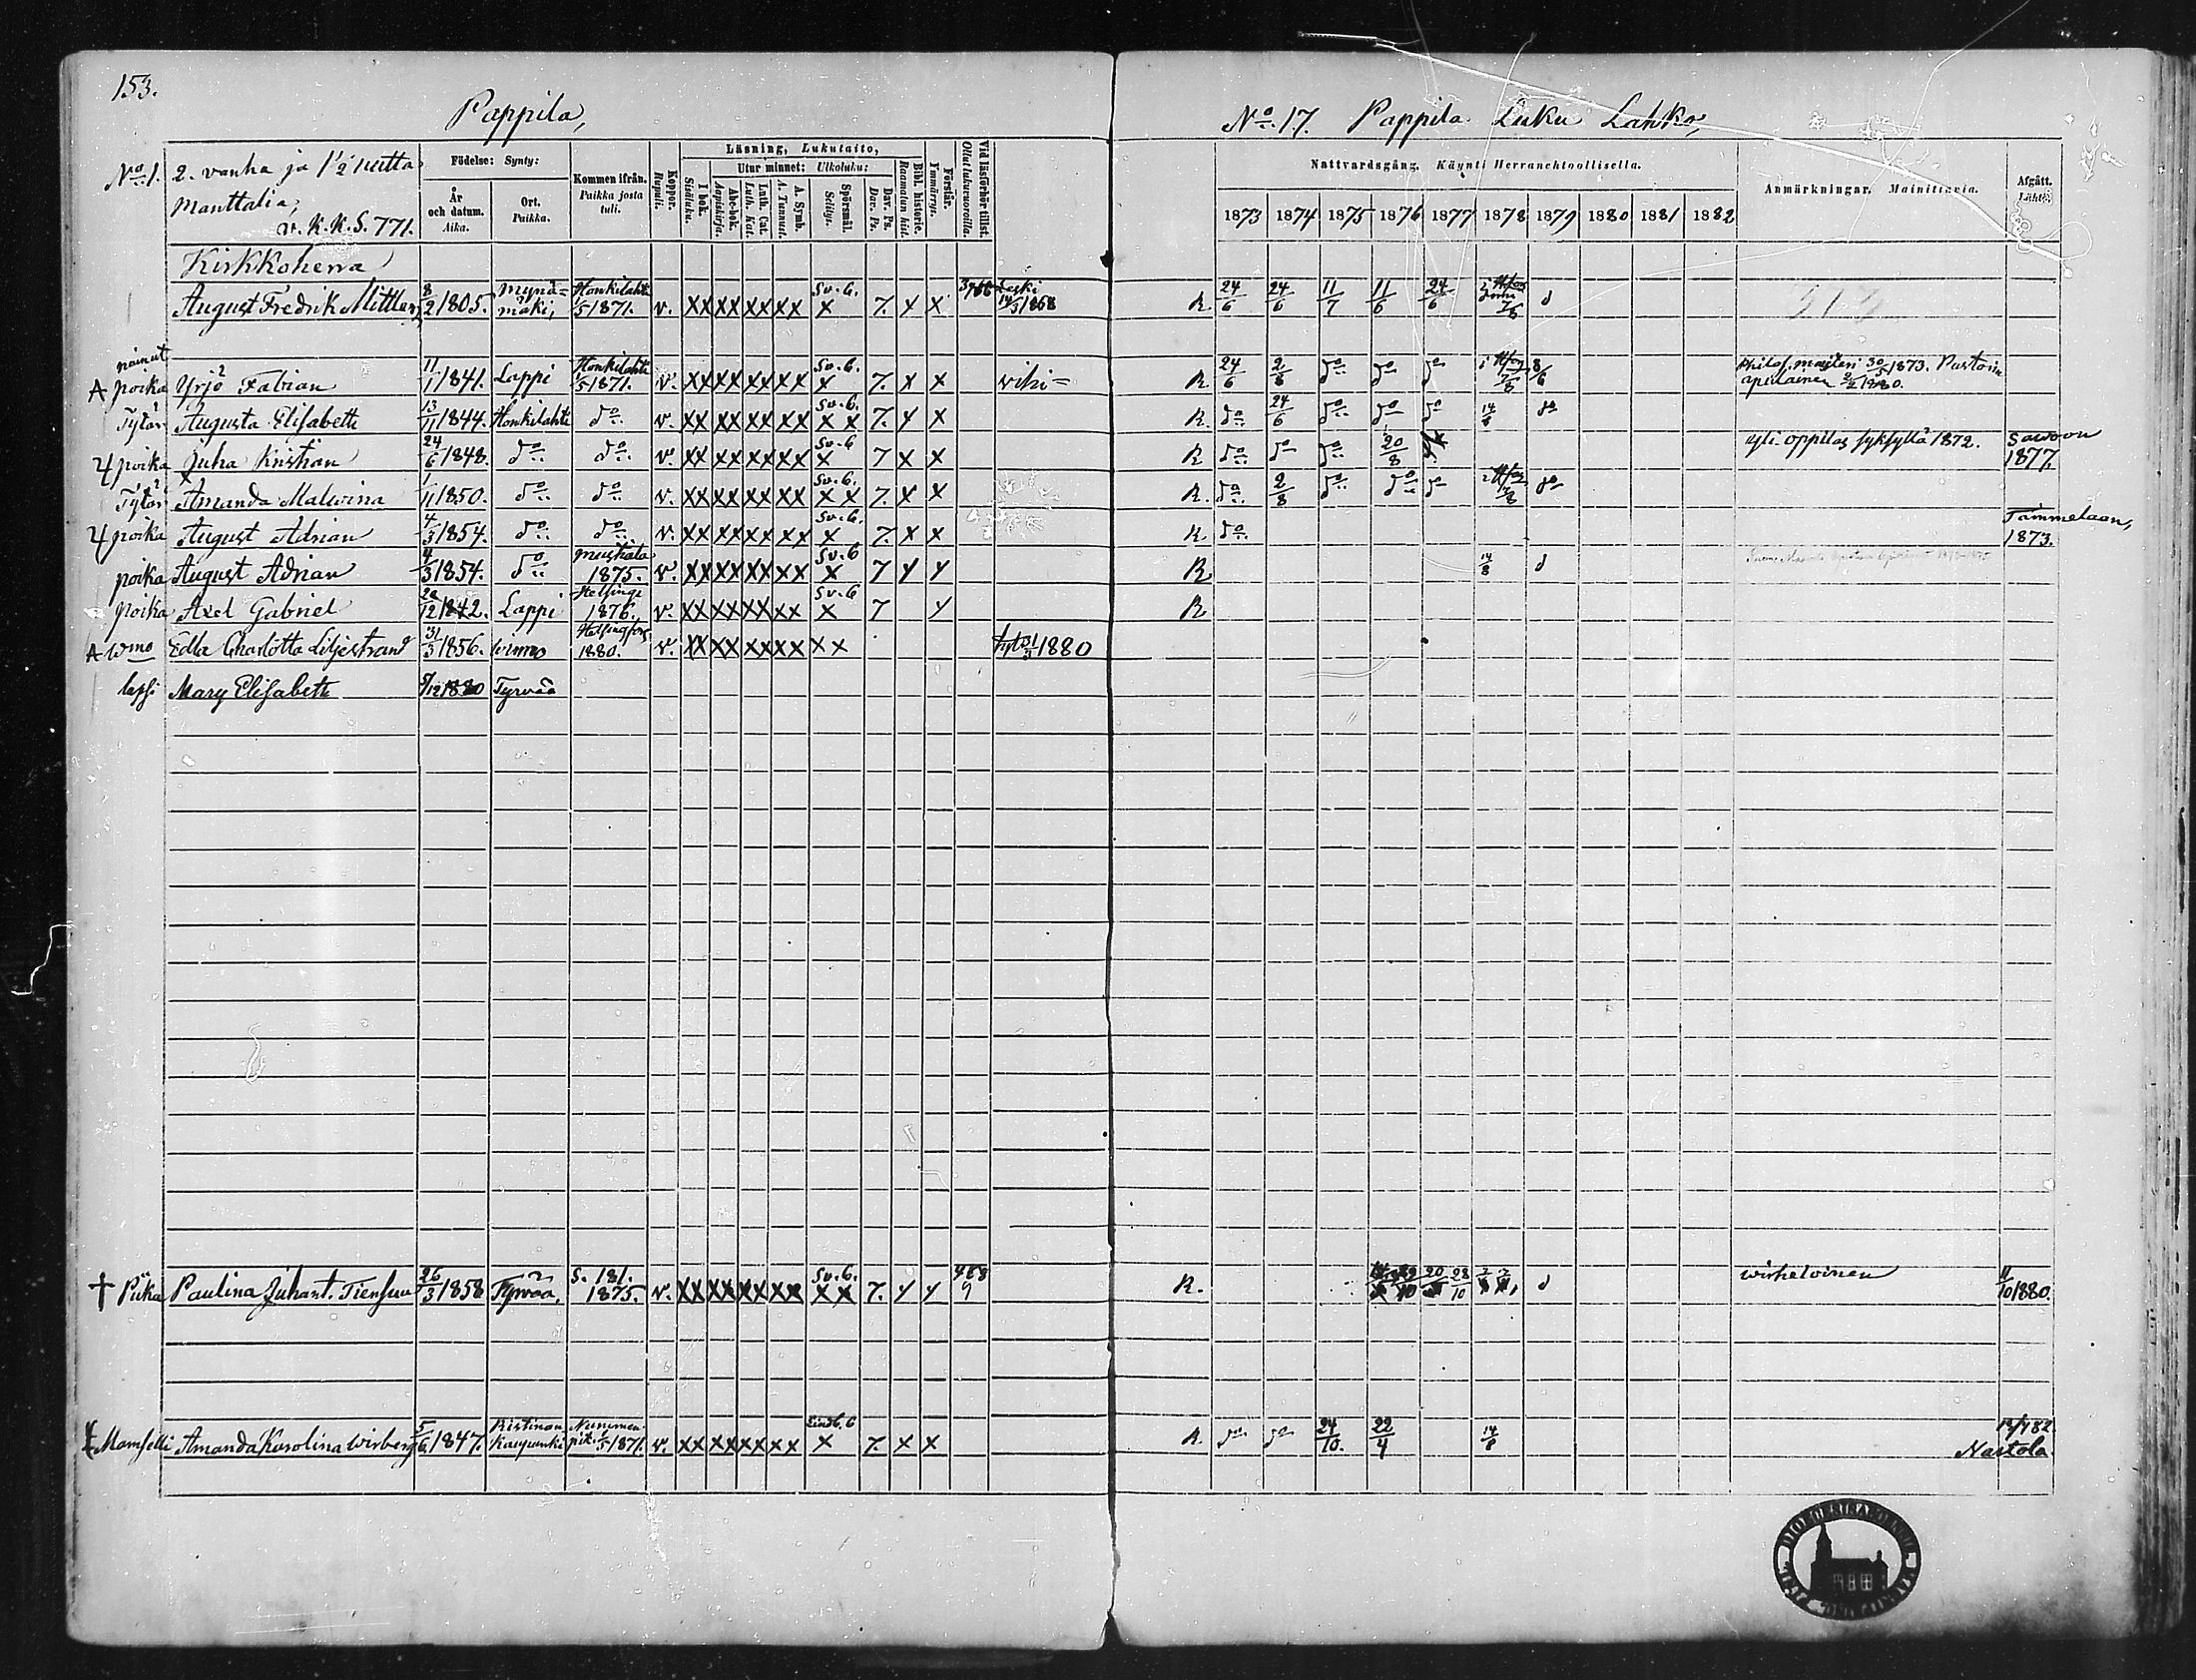 153.
Pappila,
No. 17. Pappila Luku Lahko,
No. 1. 2. vanha ja 1 1/2 uutta
Manttalia,
v. K. K. S. 771.
Födelse: Synty:
År och datum. Aika.
Ort. Paikka.
Kommen ifrån. Paikka josta tuli.
Koppor. Rupuli.
Läsning, Lukutaito,
I bok. Sisäluku.
Utur minnet: Ulkoluku:
Abc-bok. Aapiskirja.
Luth. Cat. Luth. Kat.
A. Symb. A. Tunnust.
Spörsmål. Selitys.
Dav. Ps. Dav. Ps.
Bibl. historie. Raamatun hist.
Förstår. Ymmärrys.
Vid läsförhör tillst. Ollut lukuvuoroilla.
Nattvardsgång, Käynti Herranehtoollisella.
1873 1874 1875 1876 1877 1878 1879 1880 1881 1882
Anmärkningar. Mainittavia.
Afgått. Lähtö.
Kirkkoherra
August Fredrik Mittler 8/2 1805. Mynämäki, Honkilahti 1/5 1871. v. xx xx xx xx Sv. 6. x 7. x x Leski 14/3 1868 R. 24/6 24/6 11/7 11/6 24/6
nainut
A poika Yrjö Fabian 11/1 1841. Lappi Honkilahti 1/5 1871. v. xx xx xx xx Sv. 6. x 7. x x vihi= R 24/6 2/8 do do do 8/6 Philos. maisteri 30/5 1873. Pastorin apulainen 2/2 1880.
Tytär Augusta Elisabeth 13/11 1844. Honkilahti do v. xx xx xx xx Sv. 6. x x 7. x x R. do 24/6 do do do 14/8 do
poika Juha Kristian 24/6 1848. do do v. xx xx xx xx Sv. 6 x 7 x x R do do do 20/8 Yli oppilas syksyllä 1872. Savoon 1877.
Tytär Amanda Malwina 1/11 1850. do do v. xx xx xx xx Sv. 6. x x 7. x x R. do 2/8 do do do do
poika August Adrian 4/3 1854. do do v. xx xx xx xx Sv. 6. x 7. x x R do Tammelaan, 1873.
poika August Adrian 4/3 1854. do 1875. v. xx xx xx xx Sv. 6 x 7 x x R 14/8
poika Axel Gabriel 1842. Lappi Helsinge 1876. v. xx xx xx xx Sv. 6 x 7 x R
A wmo Edla Charlotta Liljestrand 31/3 1856. Wirmo Helsingfors 1880. v. xx xx xx xx x x 1880
lapsi Mary Elisabeth 1880 Tyrvää
† Piika Paulina Juhant. Tiensuu 26/3 1858 Tyrvää, S. 181. 1875. v. xx xx xx xx Sv. 6. x x 7. x x R. 28/10 wirheivinen 11/10 1880.
Mamselli Amanda Karolina Wirberg 5/6 1847. Kristinan Kaupunki Nummen pit. 1/5 1871. v. xx xx xx xx x 7. x x R. do do 24/10. 22/4 14/8 Nastola